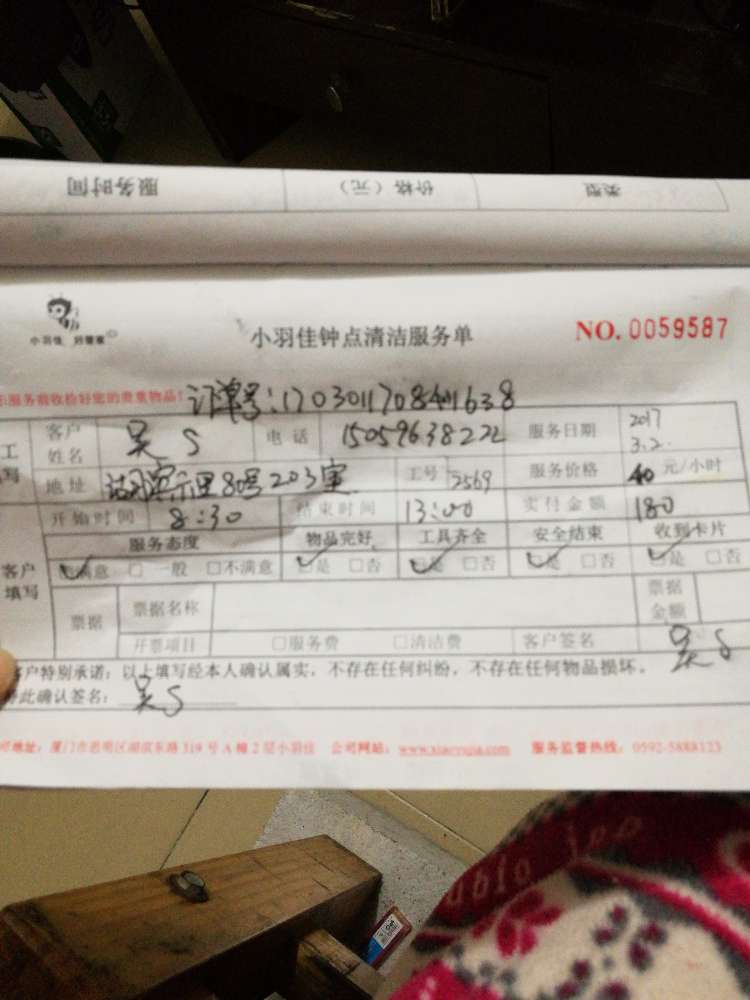 服务时间 价格（元） 类型
小羽佳 好管家
小羽佳钟点清洁服务单
NO. 0059587
示服务前收检好您的贵重物品！
订单号：170301170841638
工 客户姓名 吴 S 电话 15059638222 服务日期 2017 3.2.
写 地址 80号203室 工号 2569 服务价格 40 元/小时
开始时间 8:30 结束时间 13:00 实付金额 180
服务态度 物品完好 工具齐全 安全结束 收到卡片
客户填写 ☑满意 □一般 □不满意 ☑是 □否 ☑是 □否 ☑是 □否 ☑是 □否
票据 票据名称 票据金额
开票项目 □服务费 □清洁费 客户签名 吴S
客户特别承诺：以上填写经本人确认属实，不存在任何纠纷，不存在任何物品损坏。
此确认签名： 吴S
地址：厦门市思明区湖滨东路319号A幢2层小羽佳 公司网站： 服务监督热线：0592-5888123